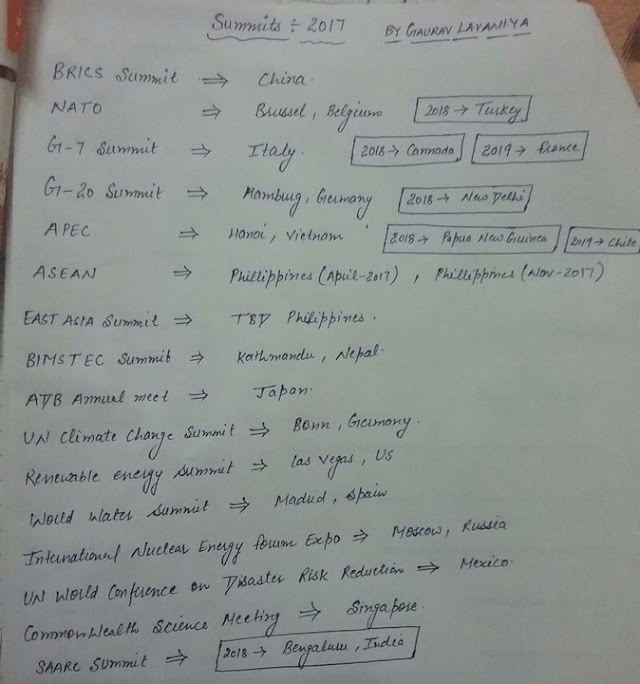 Summits ÷ 2017 BY GAURAV LAVANIYA
BRICS Summit ⇒ China.
NATO ⇒ Brussel, Belgium 2018 → Turkey
G-7 Summit ⇒ Italy. 2018 → Cannada 2019 → France
G-20 Summit ⇒ Hamburg, Germany 2018 → New Delhi
APEC ⇒ Hanoi, Vietnam 2018 → Papua New Guinea 2019 → Chile
ASEAN ⇒ Phillippines (April-2017) , Phillippines (Nov-2017)
EAST ASIA Summit ⇒ TBD Philippines.
BIMSTEC Summit ⇒ Kathmandu, Nepal.
ADB Annual meet ⇒ Japan.
UN Climate Change Summit ⇒ Bonn, Germany.
Renewable energy summit ⇒ las vegas, US
World Water Summit ⇒ Madrid, Spain
International Nuclear Energy forum Expo ⇒ Moscow, Russia
UN World Conference on Disaster Risk Reduction ⇒ Mexico.
CommonWealth Science Meeting ⇒ Singapore.
SAARC SUMMIT ⇒ 2018 → Bengaluru, India